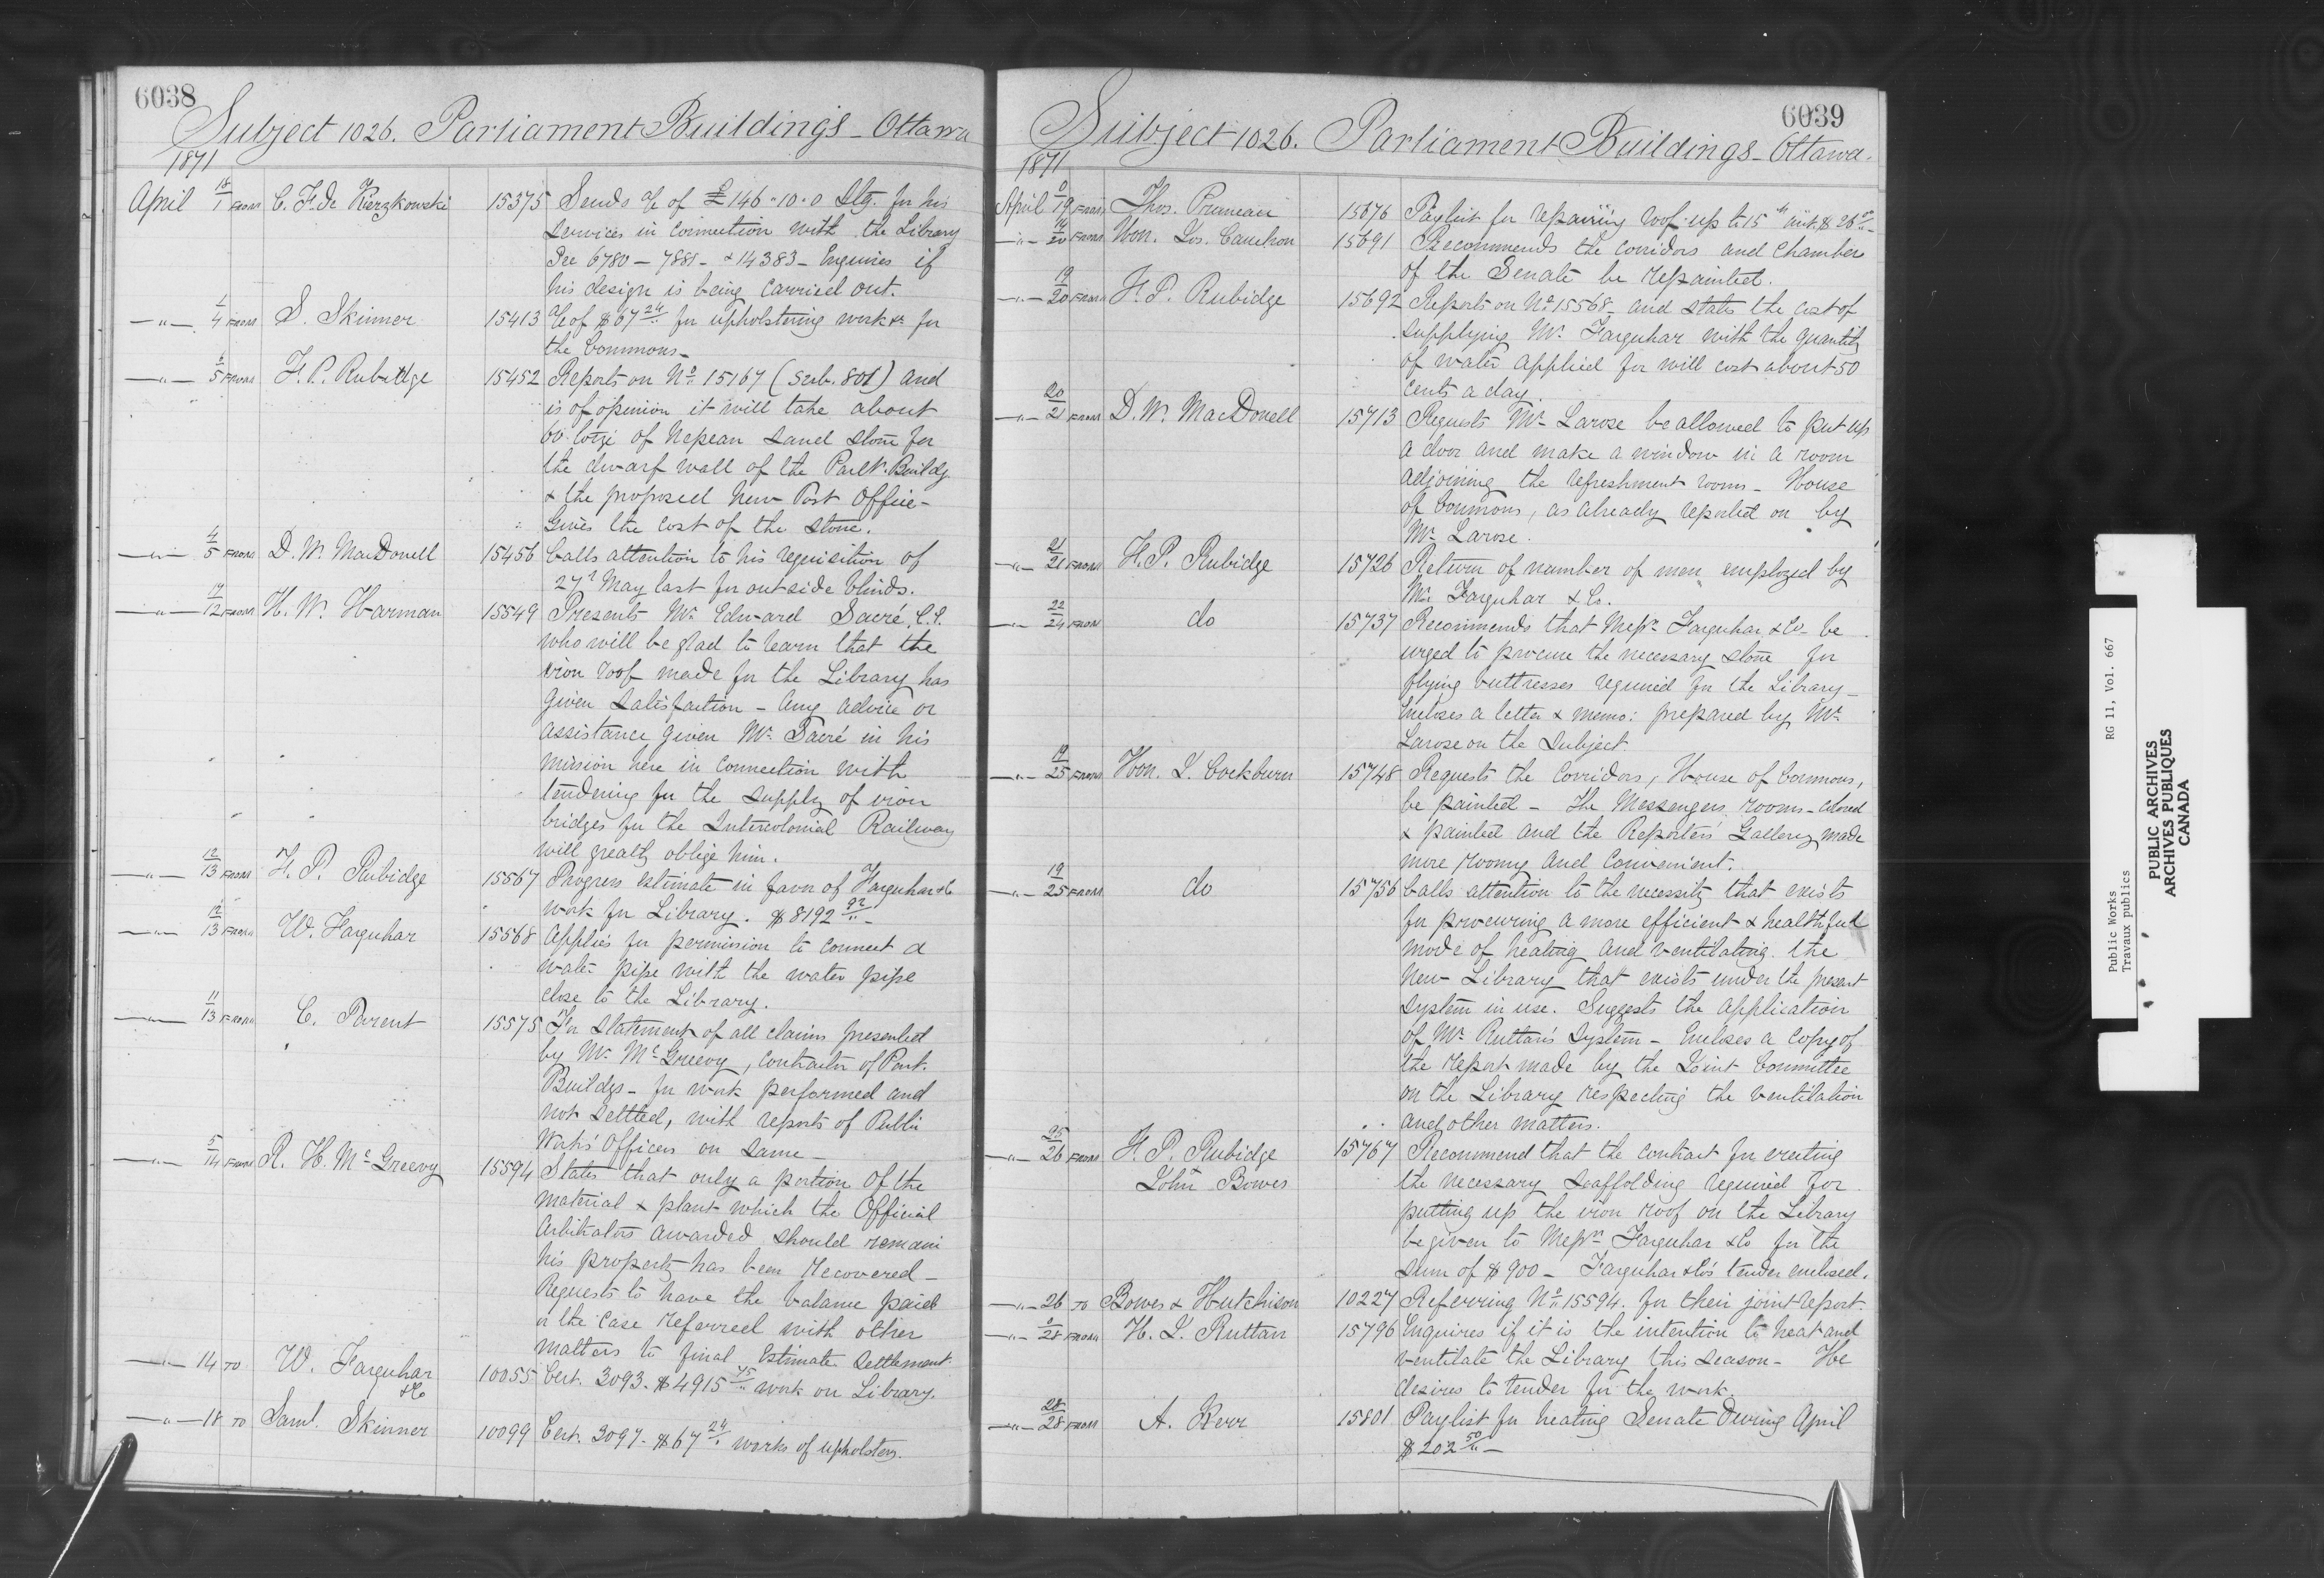 6038
Subject 1026. Parliament Buildings - Ottawa
1871
April 18/1 FROM C. F. de Kierzkowski 15375 Sends a/c of £146.10.0 Stg. for his
services in connection with the Library
See 6780 - 7881 - & 14383 - Enquires if
his design is being carried out.
-"- 4/4 FROM S. Skinner 15413 a/c of $67 24/" for upholstering work &c for
the Commons -
-"- 5 FROM F. P. Rubidge 15452 Reports on No 15167 (Sub. 801) and
is of opinion it will take about
60 toize of Nepean Sand Stone for
the dwarf wall of the Parlt. Buildg.
& the proposed New Post Office -
Gives the cost of the stone.
-"- 4/5 FROM D. W. MacDonell 15456 Calls attention to his requisition of
27th May last for outside blinds.
-"- 17/12 FROM H. W. Harman 15549 Presents Mr. Edward Sacré, C.E.
who will be glad to learn that the
iron roof made for the Library has
given satisfaction - Any advice or
assistance given Mr. Sacré in his
mission here in connection with
tendering for the supply of iron
bridges for the Intercolonial Railway
will greatly oblige him.
-"- 12/13 FROM F. P. Rubidge 15567 Progress Estimate in favor of Farquhar & Co
work for Library. $8192 92/" -
-"- 12/13 FROM W. Farquhar 15568 Applies for permission to connect a
water pipe with the water pipe
close to the Library.
-"- 11/13 FROM E. Parent 15575 For Statement of all claims presented
by Mr. McGreevy, Contractor of Parlt.
Buildgs - for work performed and
not settled, with reports of Public
Works' Officers on same -
-"- 5/14 FROM R. H. McGreevy 15594 States that only a portion of the
material & plant which the Official
Arbitrators awarded should remain
his property has been recovered -
Requests to have the balance paid
or the case referred with other
matters to final Estimate Settlement.
-"- 14 TO W. Farquhar & Co 10055 Cert. 3093. $4915 75/" work on Library.
-"- 18 TO Saml. Skinner 10099 Cert. 3097. $67 24/" works of upholstery.
6039
Subject 1026. Parliament Buildings - Ottawa.
1871
April 0/19 FROM Thos. Pruneau 15676 Paylist for repairing roof up to 15th inst. $26
-"- 20 FROM Hon. Jos. Cauchon 15691 Recommends the corridors and Chambers
of the Senate be repainted.
-"- 19/20 FROM F. P. Rubidge 15692 Reports on No 15568 - and states the cost of
supplying Mr. Farquhar with the quantity
of water applied for will cost about 50
cents a day.
-"- 20/21 FROM D. W. MacDonell 15713 Requests Mr. Larose be allowed to put up
a door and make a window in a room
adjoining the refreshment rooms - House
of Commons, as already reported on by
Mr. Larose.
-"- 21/21 FROM F. P. Rubidge 15726 Return of number of men employed by
Mr. Farquhar & Co.
-"- 22/24 FROM do 15737 Recommends that Messrs. Farquhar & Co - be
urged to procure the necessary stone for
flying buttresses required for the Library -
Encloses a letter & memo: prepared by Mr.
Larose on the subject.
-"- 19/25 FROM Hon. J. Cockburn 15748 Requests the corridors, House of Commons,
be painted - The Messengers rooms - cleaned
& painted and the Reporters' Gallery made
more roomy and convenient.
-"- 19/25 FROM do 15756 Calls attention to the necessity that exists
for procuring a more efficient & healthful
mode of heating and ventilating the
New Library that exists under the present
system in use. Suggests the application
of Mr. Ruttan's System - Encloses a copy of
the report made by the Joint Committee
on the Library respecting the ventilation
and other matters.
-"- 25/26 FROM F. P. Rubidge 15767 Recommend that the contract for erecting
John Bowes the necessary scaffolding required for
putting up the iron roof on the Library
be given to Messrs. Farquhar & Co for the
sum of $900 - Farquhar & Co's tender enclosed.
-"- 26 TO Bowes & Hutchison 10227 Referring No 15594. for their joint report.
-"- 0/28 FROM H. J. Ruttan 15796 Enquires if it is the intention to heat and
ventilate the Library this season - He
desires to tender for the work.
-"- 28/28 FROM A. Kerr 15801 Paylist for heating Senate During April
$202 50/" -
Public Works RG 11, Vol. 667
Travaux publics
PUBLIC ARCHIVES
ARCHIVES PUBLIQUES
CANADA